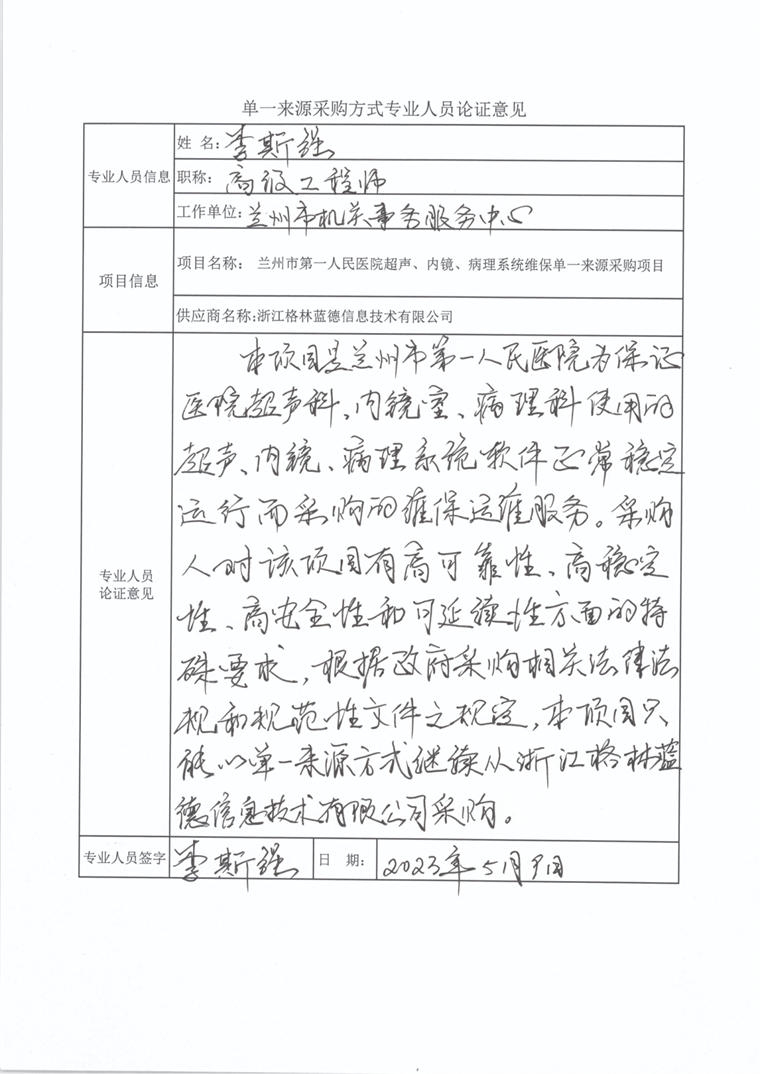 单一来源采购方式专业人员论证意见
专业人员信息
姓 名：李斯强
职称：高级工程师
工作单位：兰州市机关事务服务中心
项目信息
项目名称： 兰州市第一人民医院超声、内镜、病理系统维保单一来源采购项目
供应商名称:浙江格林蓝德信息技术有限公司
专业人员
论证意见
本项目是兰州市第一人民医院为保证
医院超声科、内镜室、病理科使用的
超声、内镜、病理系统软件正常稳定
运行而采购的维保运维服务。采购
人对该项目有高可靠性、高稳定
性、高安全性和可延续性方面的特
殊要求，根据政府采购相关法律法
规和规范性文件之规定，本项目只
能以单一来源方式继续从浙江格林蓝
德信息技术有限公司采购。
专业人员签字 李斯强 日 期： 2023年5月9日